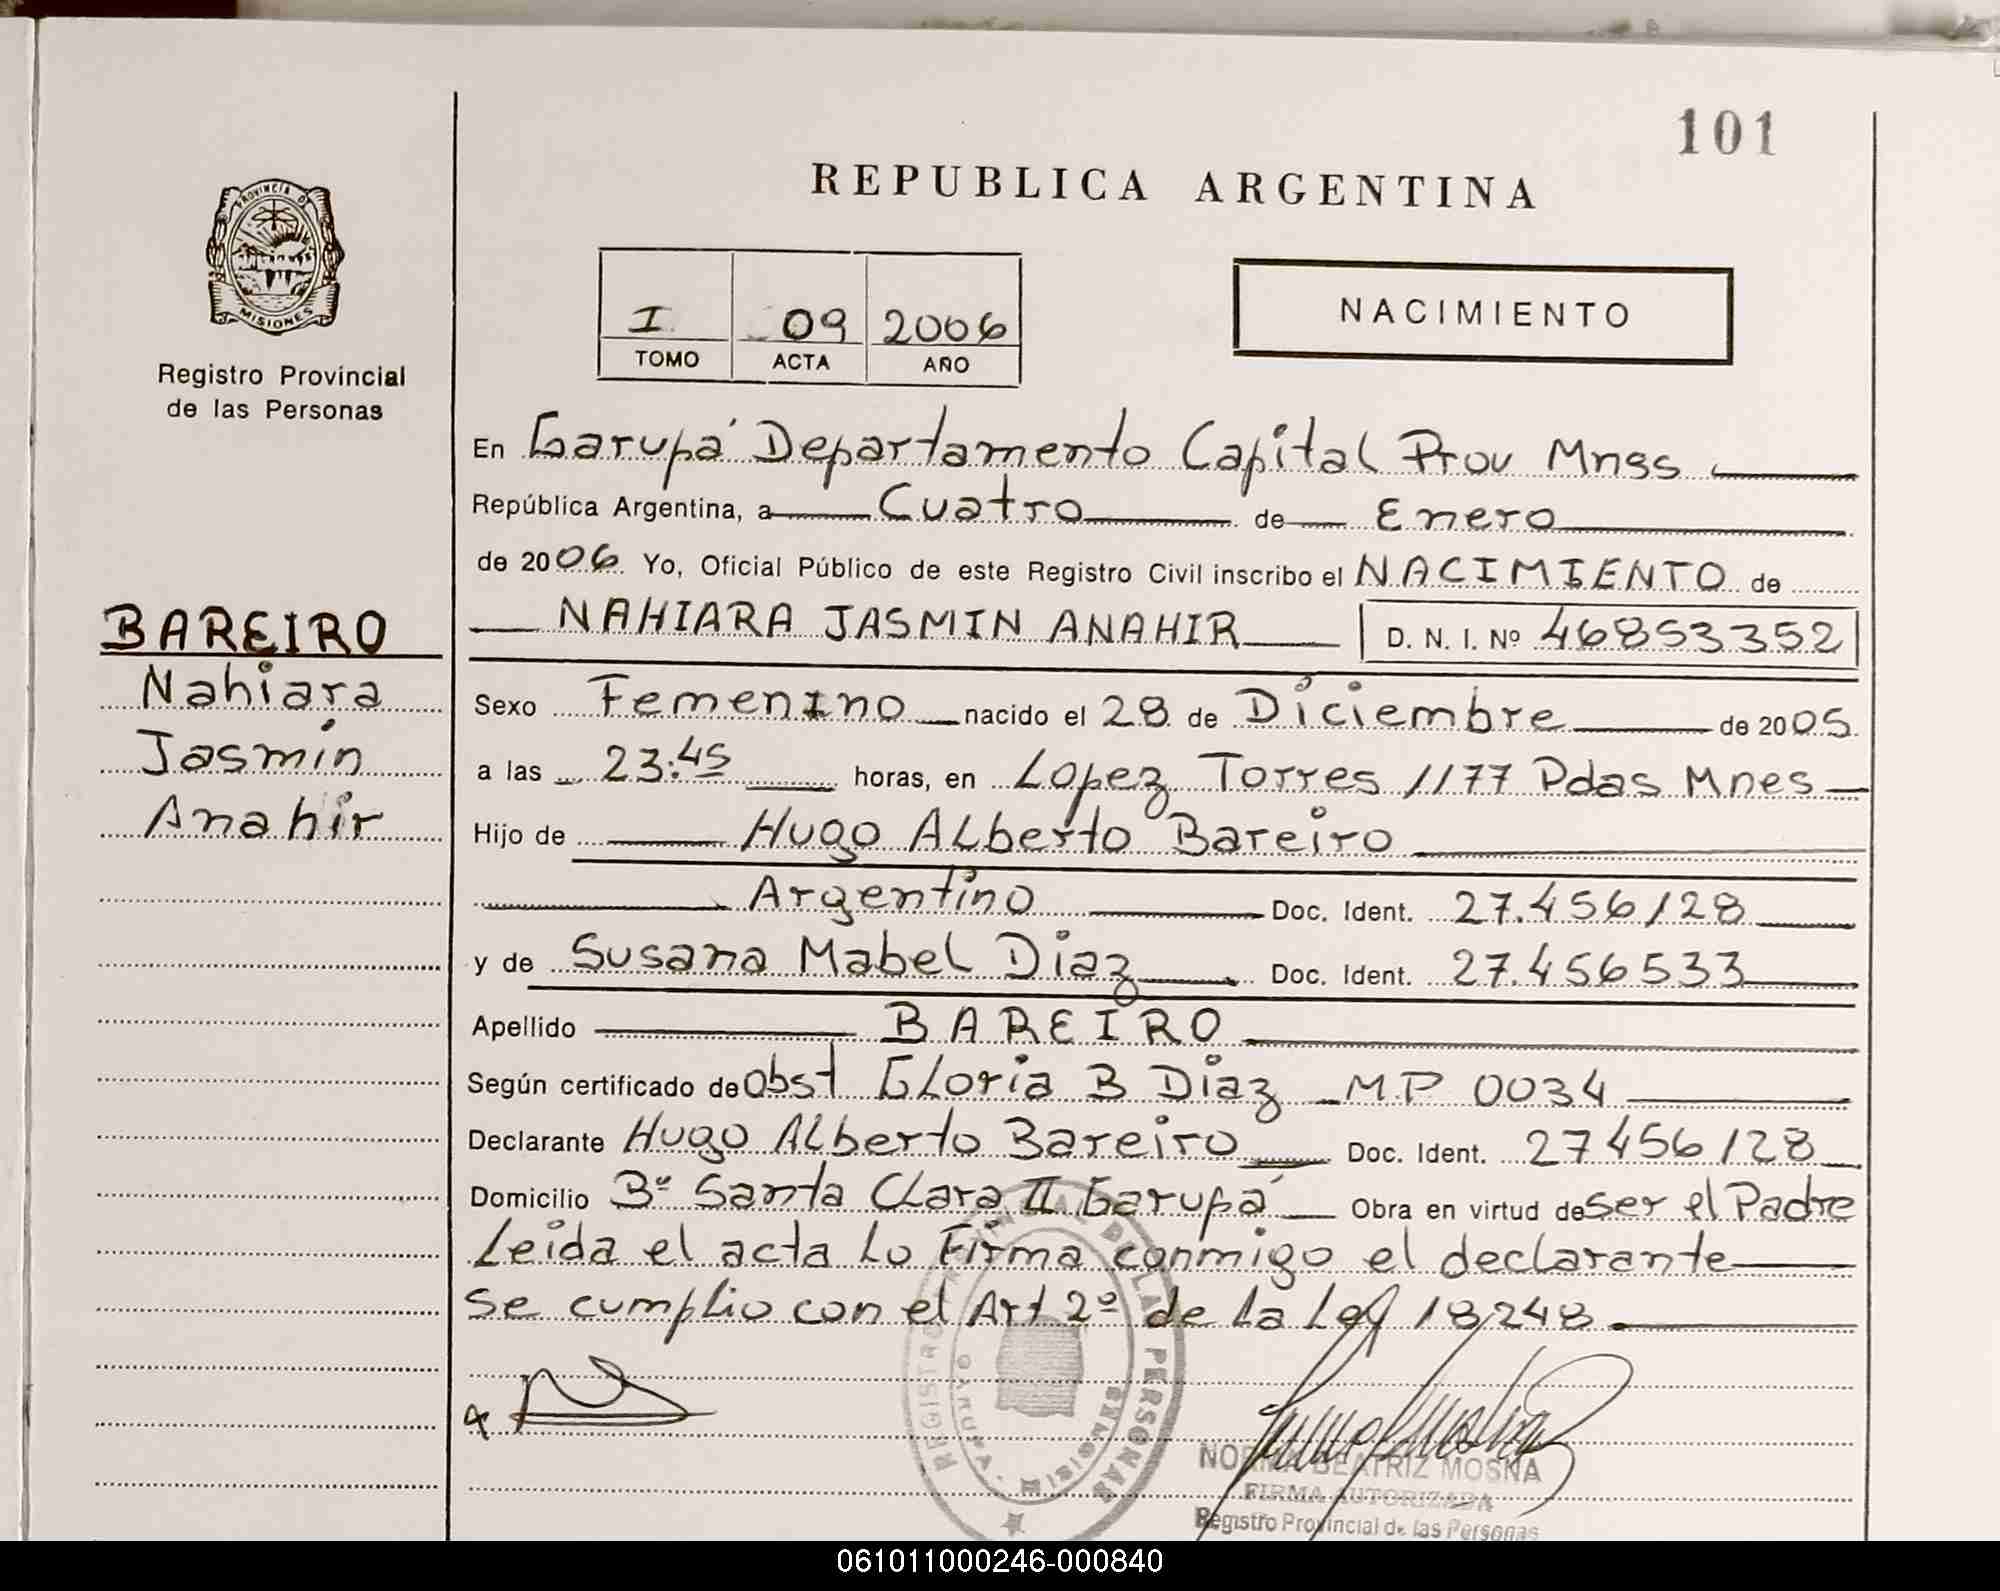 101
REPUBLICA ARGENTINA
PROVINCIA D
MISIONES
Registro Provincial
de las Personas
I 09 2006
TOMO ACTA AÑO
NACIMIENTO
En Garupá Departamento Capital Prov Mnss
República Argentina, a Cuatro de Enero
de 2006 Yo, Oficial Público de este Registro Civil inscribo el NACIMIENTO de
NAHIARA JASMIN ANAHIR D. N. I. Nº 46853352
BAREIRO
Nahiara
Jasmín
Anahir
Sexo Femenino nacido el 28 de Diciembre de 2005
a las 23:45 horas, en Lopez Torres 1177 Pdas Mnes
Hijo de Hugo Alberto Bareiro
Argentino Doc. Ident. 27.456128
y de Susana Mabel Diaz Doc. Ident. 27.456533
Apellido BAREIRO
Según certificado de Obst Gloria B Diaz MP 0034
Declarante Hugo Alberto Bareiro Doc. Ident. 27456128
Domicilio Bº Santa Clara II Garupá Obra en virtud de ser el Padre
Leida el acta Lo Firma conmigo el declarante
Se cumplio con el Art 2º de La Ley 18248
REGISTRO PROVINCIAL DE LAS PERSONAS
GARUPA - MISIONES
NORMA BEATRIZ MOSNA
FIRMA AUTORIZADA
Registro Provincial de las Personas
061011000246-000840